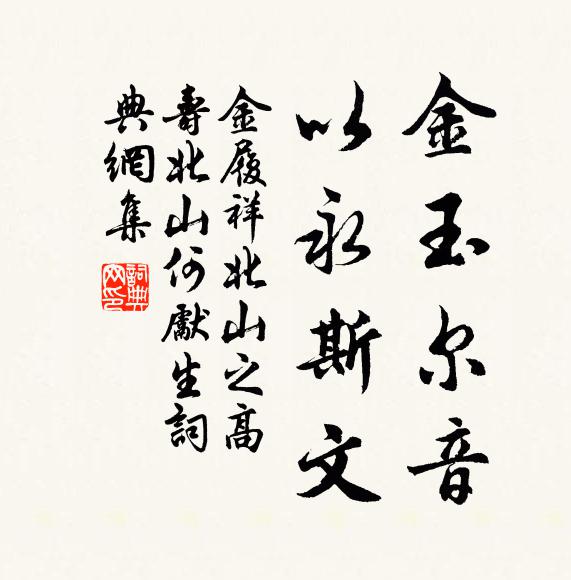 金玉尔音
以永斯文
金履祥北山之高
壽北山何獻生詞
典網集
詞典网印